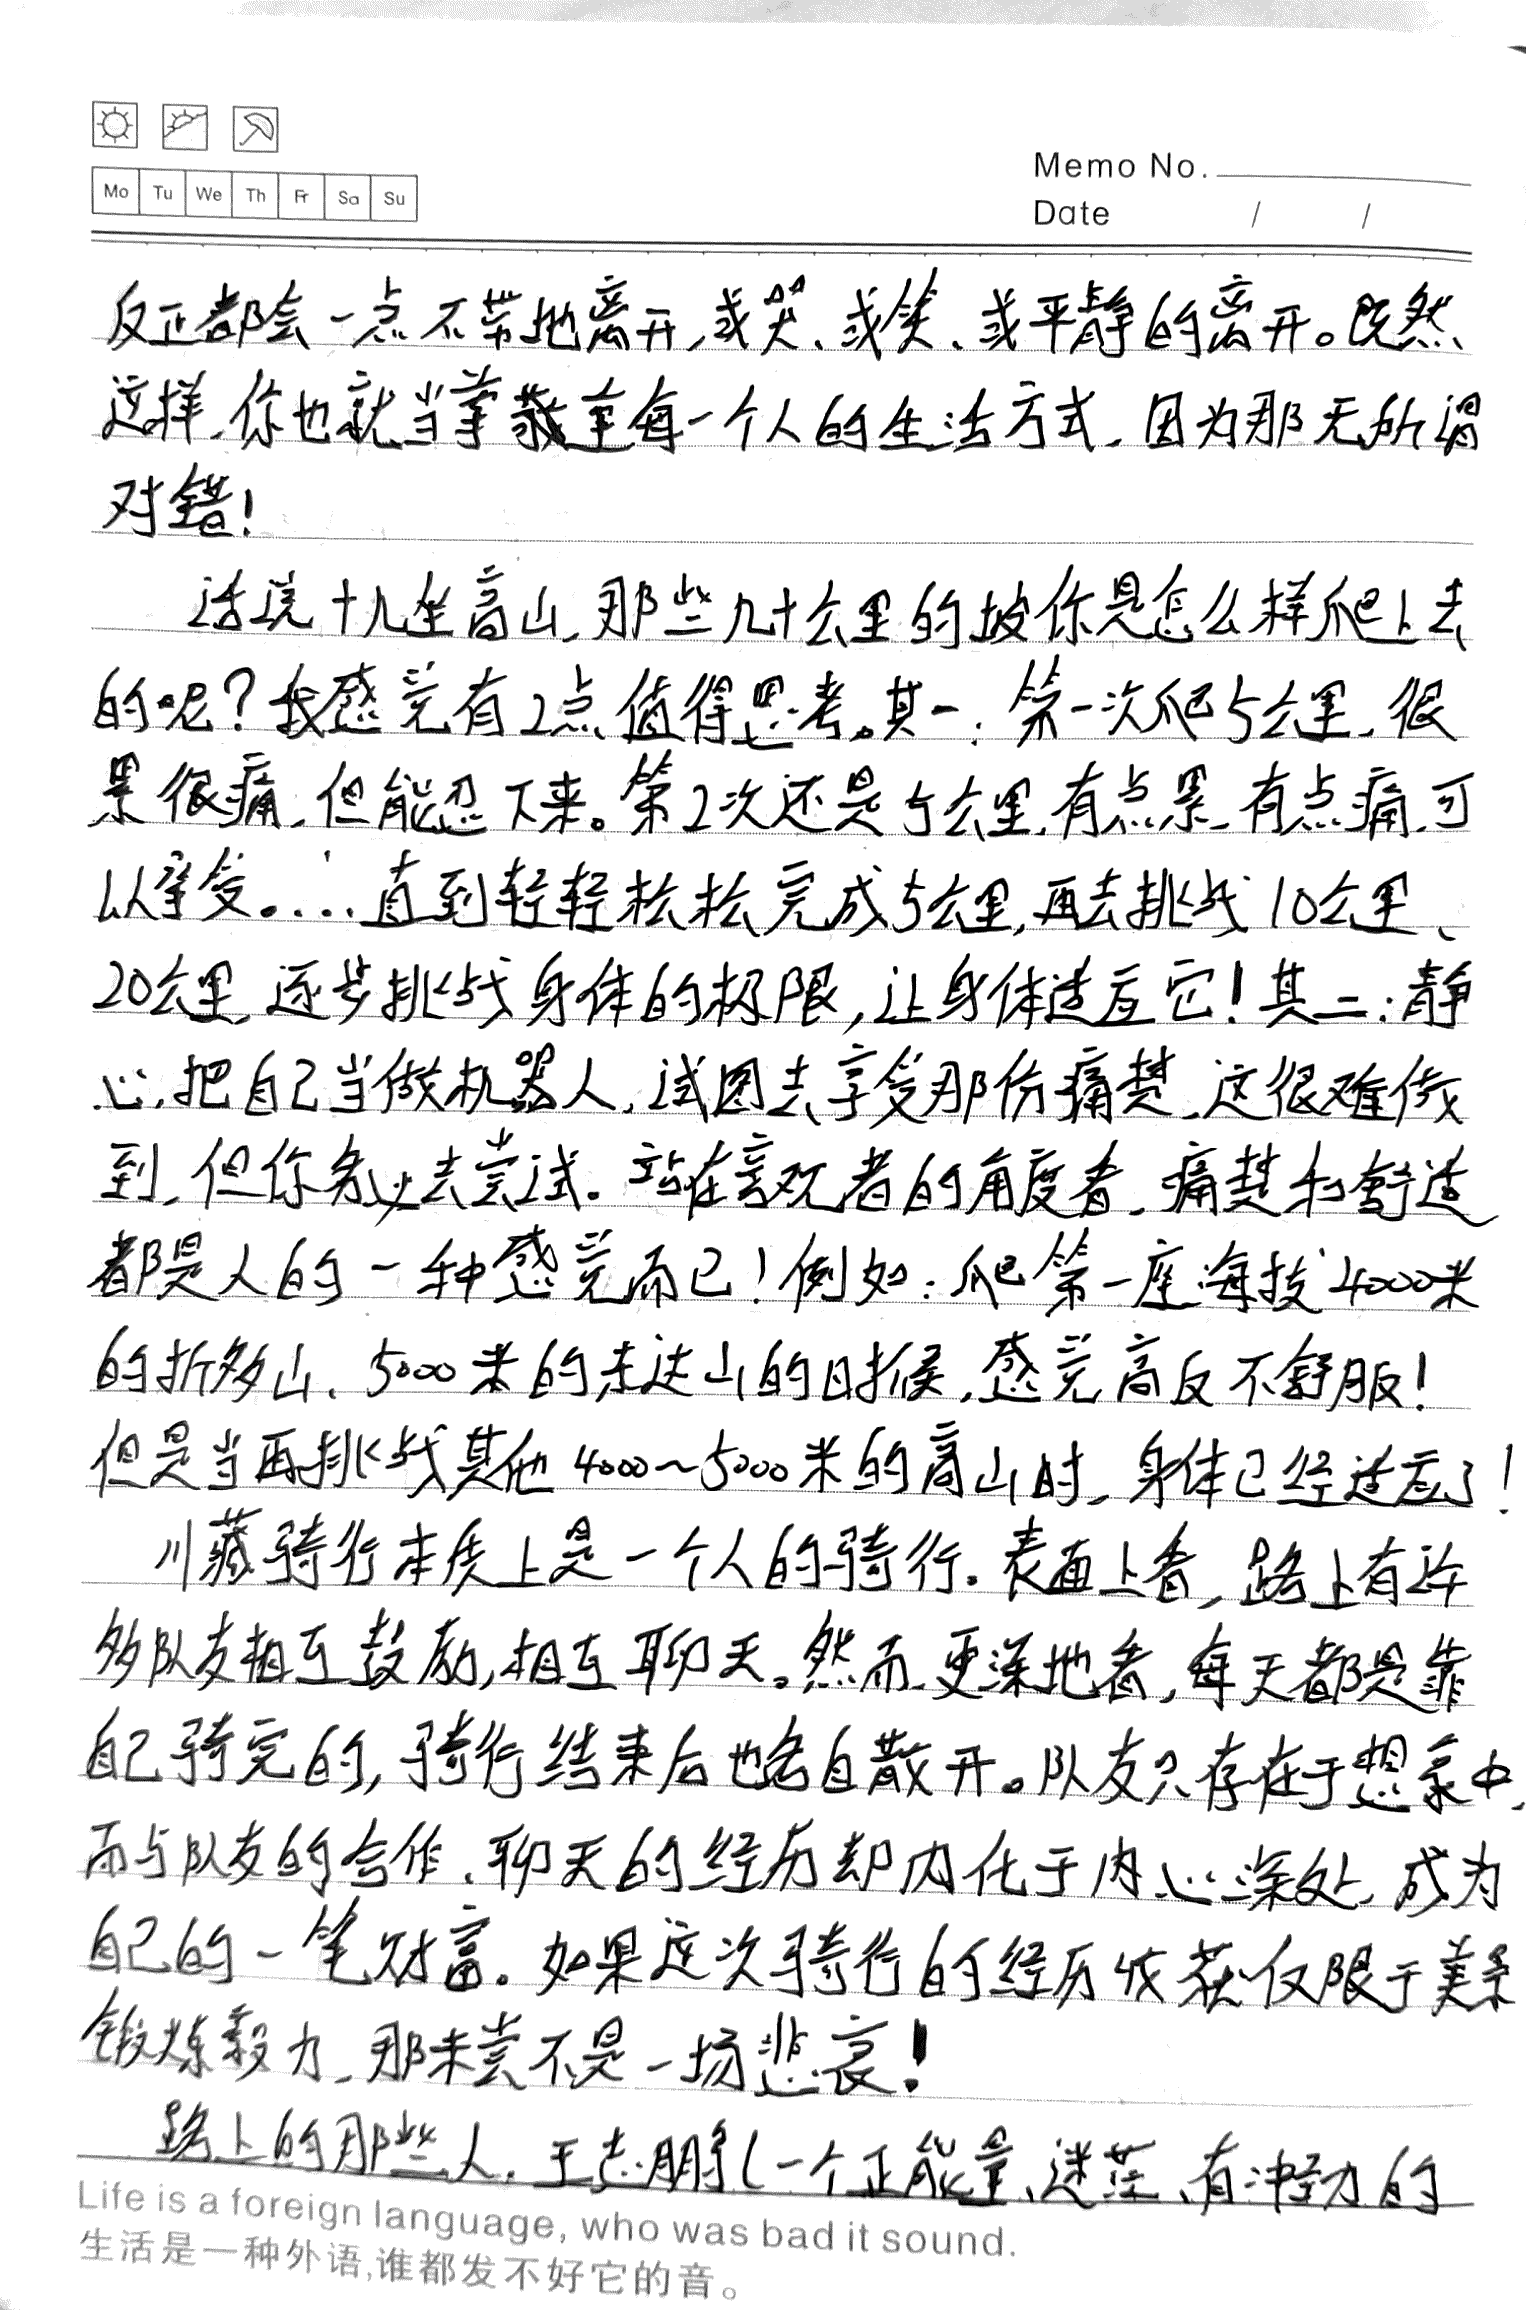 Memo No.
Mo Tu We Th Fr Sa Su
Date / /
反正都会一点不带地离开,或哭、或笑、或平静的离开。既然
这样,你也就当掌敬重每一个人的生活方式,因为那无所谓
对错!
话说十几座高山,那些几十公里的坡你是怎么样爬上去
的呢?我感觉有2点值得思考。其一:第一次爬5公里,很
累很痛,但能忍下来。第2次还是5公里,有点累,有点痛,可
以享受。...直到轻轻松松完成5公里,再去挑战10公里、
20公里,逐步挑战身体的极限,让身体适应它!其二:静
心,把自己当做机器人,试图去享受那份痛楚,这很难做
到,但你务必去尝试。站在旁观者的角度看,痛楚和舒适
都是人的一种感觉而已!例如:爬第一座海拔4000米
的折多山、5000米的东达山的时候,感觉高反不舒服!
但是当再挑战其他4000~5000米的高山时,身体已经适应了!
川藏骑行本质上是一个人的骑行。表面上看,路上有许
多队友相互鼓励,相互聊天。然而,更深地看,每天都是靠
自己骑完的,骑行结束后也各自散开。队友只存在于想象中,
而与队友的合作、聊天的经历却内化于内心深处,成为
自己的一笔财富。如果这次骑行的经历收获仅限于美景
锻炼毅力,那未尝不是一场悲哀!
路上的那些人,王志鹏(一个正能量、迷茫、有冲劲的
Life is a foreign language, who was bad it sound.
生活是一种外语,谁都发不好它的音。